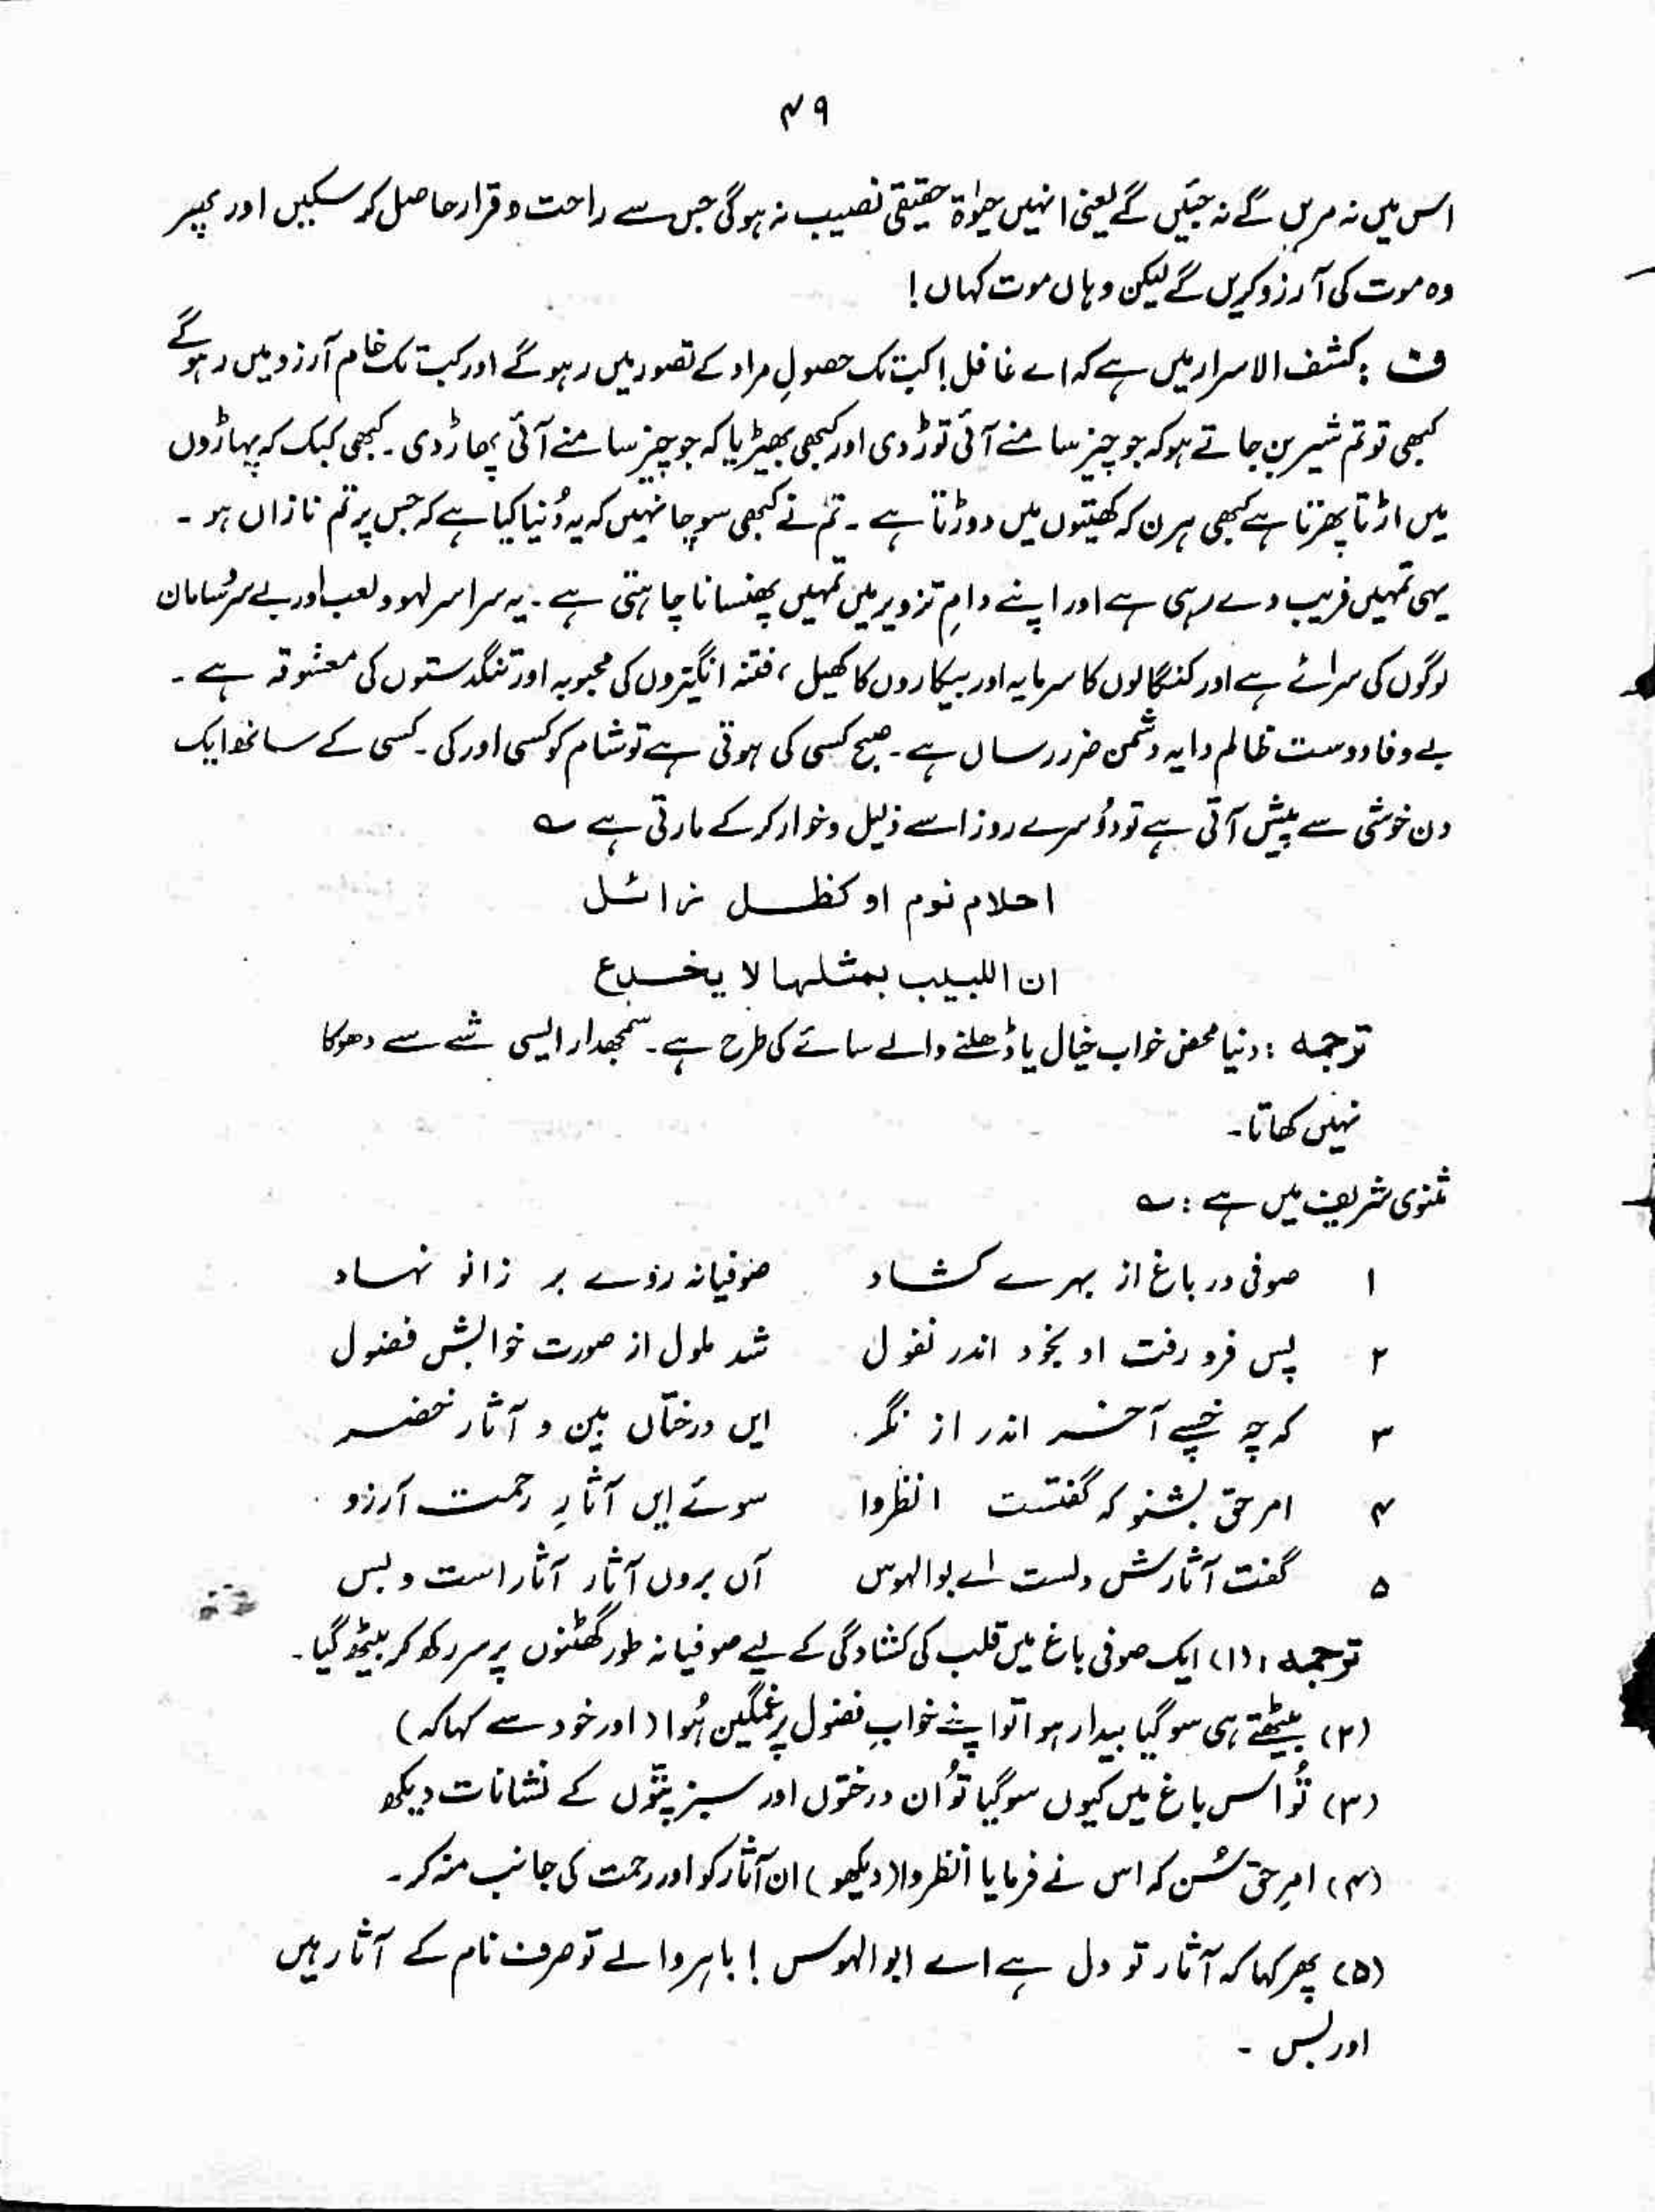 ۴۹
اس میں نہ مریں گے نہ جئیں گے یعنی انہیں حیٰوۃ حقیقی نصیب نہ ہوگی جس سے راحت و قرار حاصل کر سکیں اور پھر
وہ موت کی آرزو کریں گے لیکن وہاں موت کہاں!
ف : کشف الاسرار میں ہے کہ اے غافل! کب تک حصولِ مراد کے تصور میں رہو گے اور کب تک خام آرزو میں رہو گے
کبھی تو تم شیر بن جاتے ہو کہ جو چیز سامنے آئی توڑ دی اور کبھی بھیڑیا کہ جو چیز سامنے آئی پھاڑ دی۔ کبھی کبک کہ پہاڑوں
میں اڑتا پھرتا ہے کبھی ہرن کہ کھیتوں میں دوڑتا ہے۔ تم نے کبھی سوچا نہیں کہ یہ دُنیا کیا ہے کہ جس پر تم نازاں ہو۔
یہی تمہیں فریب دے رہی ہے اور اپنے دامِ تزویر میں تمہیں پھنسانا چاہتی ہے۔ یہ سراسر لہو و لعب اور بے سر و سامان
لوگوں کی سرائے ہے اور کنگالوں کا سرمایہ اور بیکاروں کا کھیل، فتنہ انگیزوں کی محبوبہ اور تنگدستوں کی معشوقہ ہے۔
بے وفا دوست ظالم دایہ دشمن ضرر رساں ہے۔ صبح کسی کی ہوتی ہے تو شام کو کسی اور کی۔ کسی کے ساتھ ایک
دن خوشی سے پیش آتی ہے تو دوُسرے روز اسے ذلیل و خوار کر کے مارتی ہے ؎
احلام نوم او کظل زائل
ان اللبیب بمثلہا لا یخدع
ترجمہ : دنیا محض خواب خیال یا ڈھلنے والے سائے کی طرح ہے۔ سمجھدار ایسی شے سے دھوکا
نہیں کھاتا۔
مثنوی شریف میں ہے : ؎
۱ صوفی در باغ از بہرے کشاد صوفیانہ روئے بر زانو نہاد
۲ پس فرو رفت او بخود اندر نغول شد ملول از صورت خوابش فضول
۳ کہ چہ خسپے آخر اندر از نگر ایں درختاں بین و آثار خضر
۴ امر حق بشنو کہ گفتست انظروا سوئے ایں آثارِ رحمت آرزو
۵ گفت آثارش دلست اے بوالہوس آں بروں آثار آثار است و بس
ترجمہ : (۱) ایک صوفی باغ میں قلب کی کشادگی کے لیے صوفیانہ طور گھٹنوں پر سر رکھ کر بیٹھ گیا۔
(۲) بیٹھتے ہی سو گیا بیدار ہوا تو اپنے خوابِ فضول پر غمگین ہُوا (اور خود سے کہا کہ)
(۳) تُو اس باغ میں کیوں سو گیا تُو اُن درختوں اور سبز پتّوں کے نشانات دیکھ
(۴) امرِ حق سُن کہ اس نے فرمایا انظروا (دیکھو) ان آثار کو اور رحمت کی جانب منہ کر۔
(۵) پھر کہا کہ آثار تو دل ہے اے ابوالہوس! باہر والے تو صرف نام کے آثار ہیں
اور بس۔